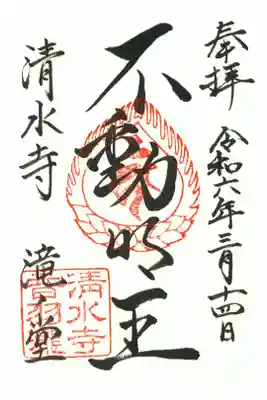 奉拝
令和六年三月十四日
不動明王
清水寺
滝之堂
清水寺
音羽滝